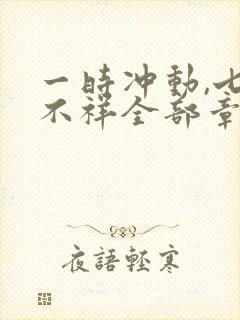 一時冲動,七
不祥全部章
夜語輕寒